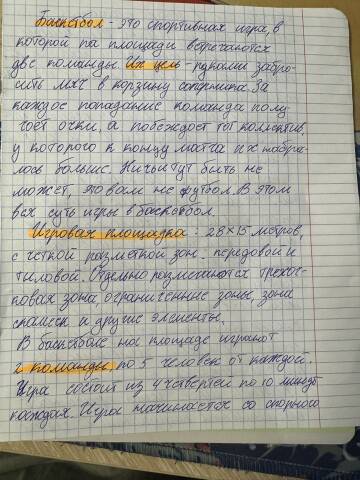 Баскетбол - это спортивная игра, в
которой на площади встречаются
две команды. Их цель - руками забро-
сить мяч в корзину соперника. За
каждое попадание команда полу-
чает очки, а побеждает тот коллектив,
у которого к концу матча их набра-
лось больше. Ничьи тут быть не
может, это вам не футбол. В этом
вся суть игры в баскетбол.
Игровая площадка: 28×15 метров,
с четкой разметкой зон. передовой и
тыловой. Отдельно размечаются трехоч-
ковая зона, ограниченные зоны, зона
скамеек и другие элементы.
В баскетболе на площаде играют
2 команды по 5 человек от каждой.
Игра состоит из 4 четвертей по 10 минут
каждая. Игра начинается со спорного